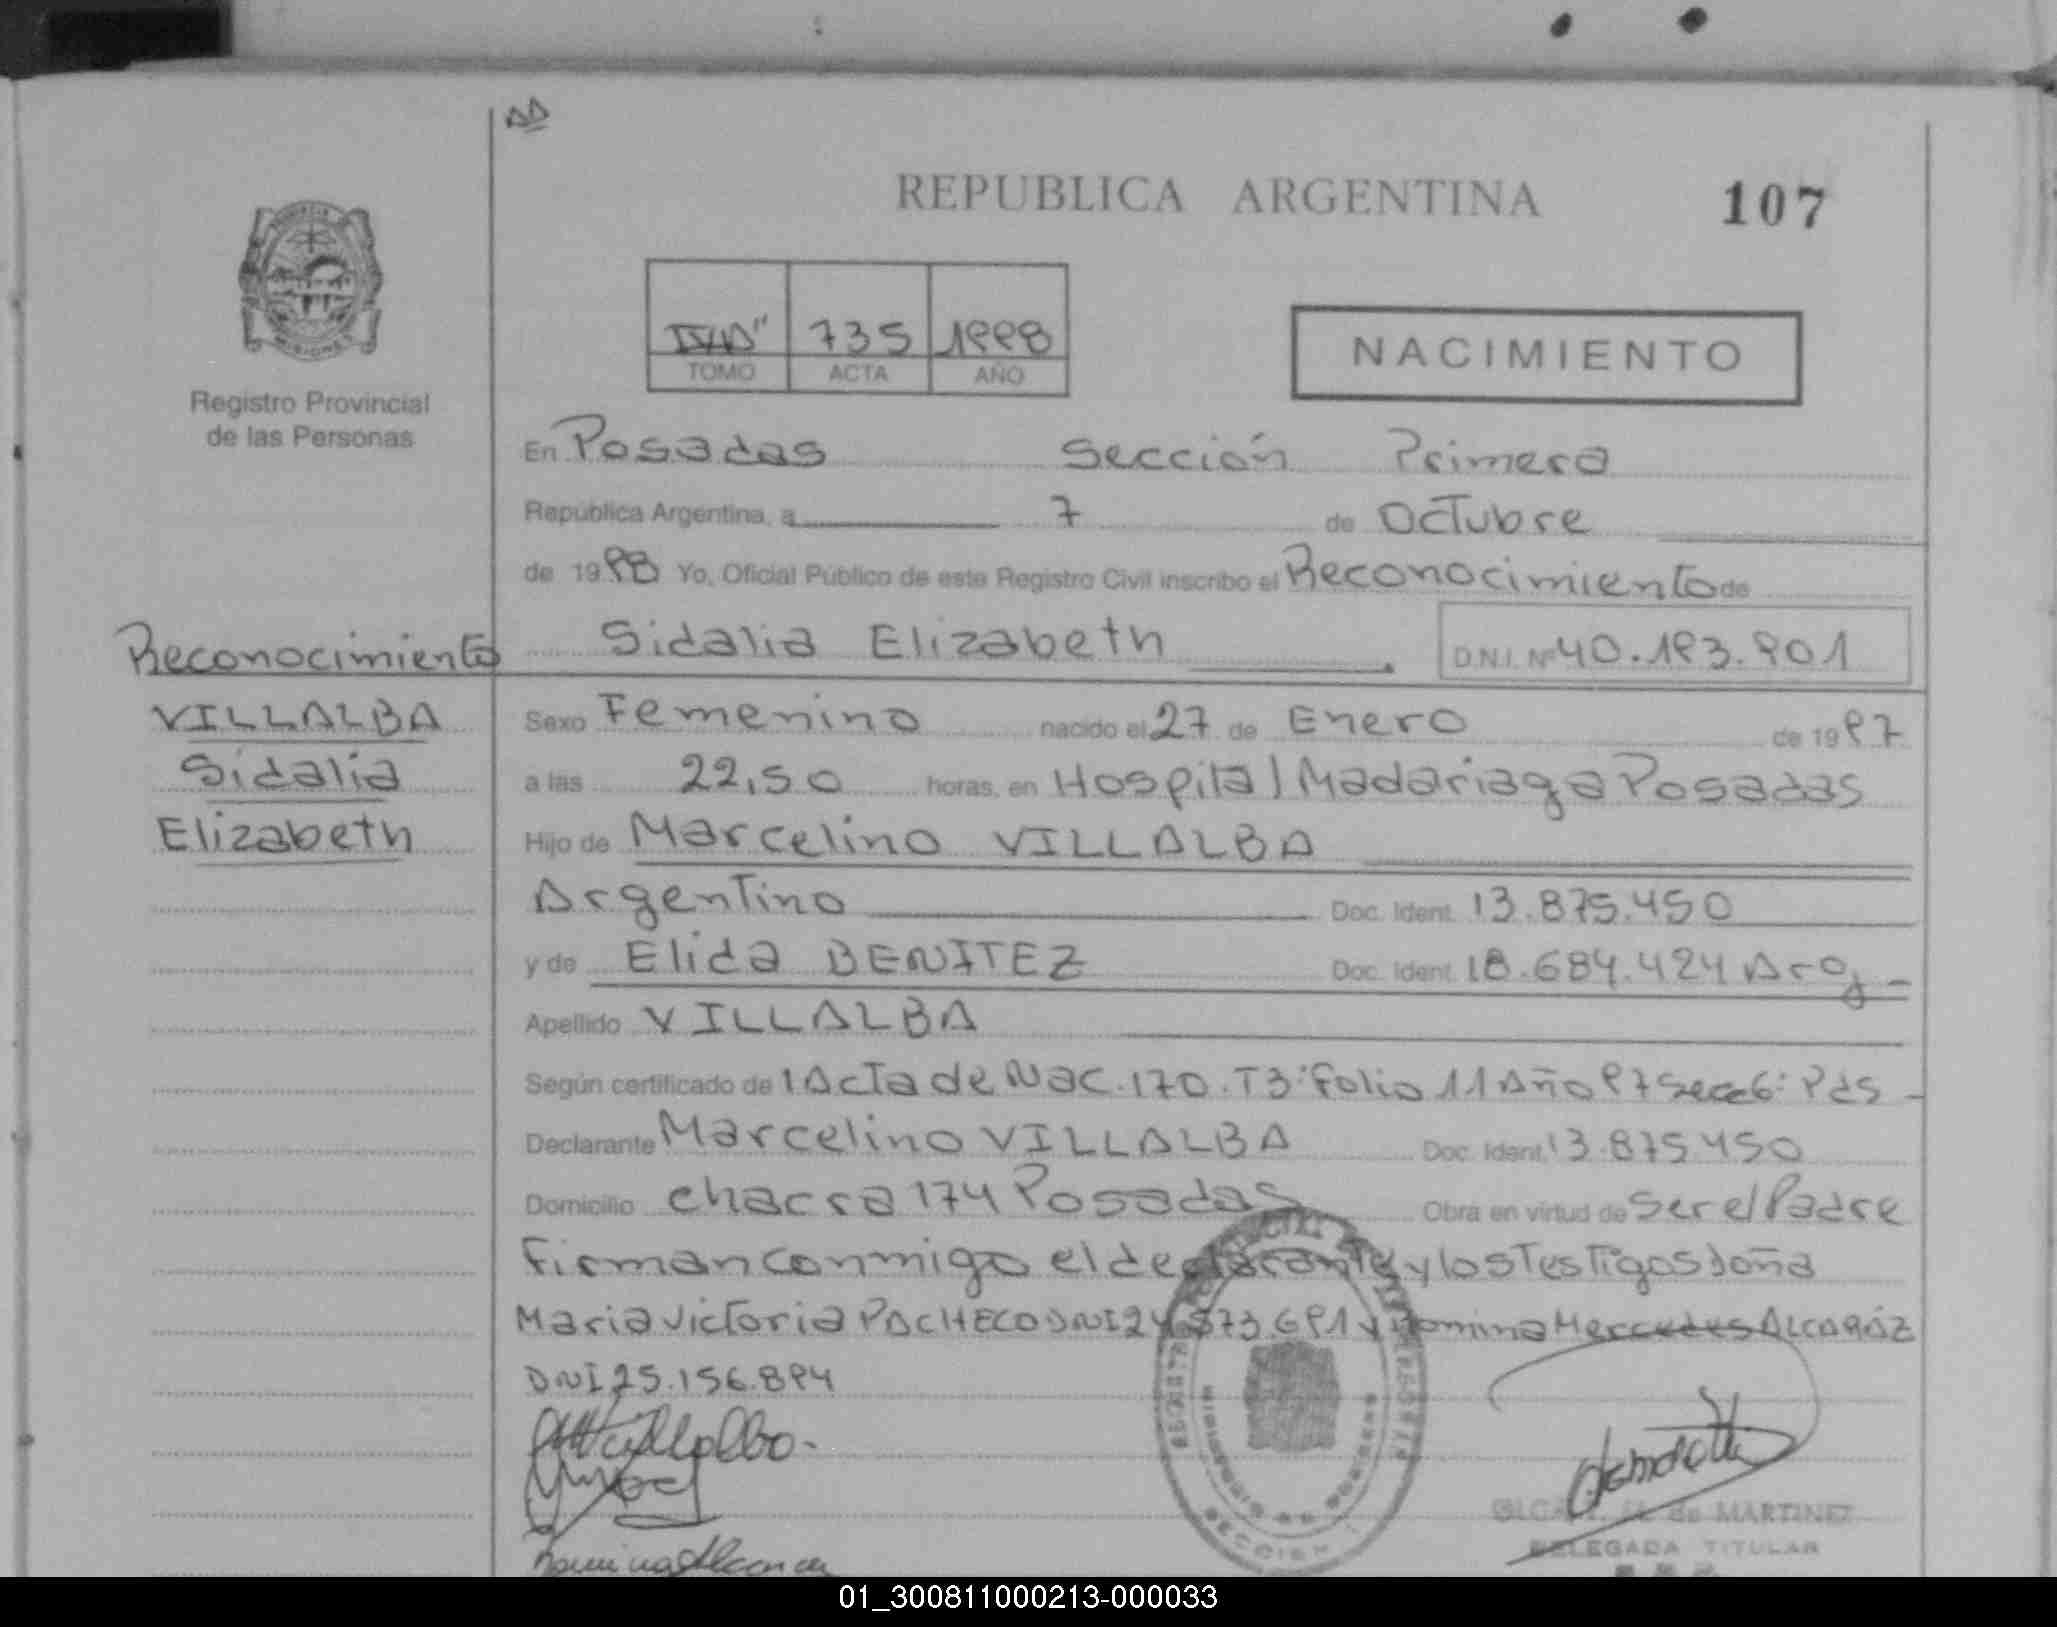 REPUBLICA ARGENTINA
107
MISIONES
Registro Provincial
de las Personas
735 1998
TOMO ACTA AÑO
NACIMIENTO
En Posadas Sección Primera
República Argentina, a 7 de Octubre
de 1998 Yo, Oficial Público de este Registro Civil inscribo el Reconocimiento de
Sidalia Elizabeth D.N.I. Nº 40.193.901
Reconocimiento
VILLALBA
Sidalia
Elizabeth
Sexo Femenino nacido el 27 de Enero de 1997
a las 22,50 horas, en Hospital Madariaga Posadas
Hijo de Marcelino VILLALBA
Argentino Doc. Ident. 13.875.450
y de Elida BENITEZ Doc. Ident. 18.684.424 Arg
Apellido VILLALBA
Según certificado de 1 Acta de Nac. 170. T3: Folio 11 Año 97 Secc 6: Pds -
Declarante Marcelino VILLALBA Doc. Ident. 13.875.450
Domicilio chacra 174 Posadas Obra en virtud de Ser el Padre
Firman conmigo el declarante y los Testigos doña
Maria Victoria PACHECO DNI 24.573.691 y Romina Mercedes ALCARÁZ
DNI 25.156.894
de MARTINEZ
DELEGADA TITULAR
01_300811000213-000033